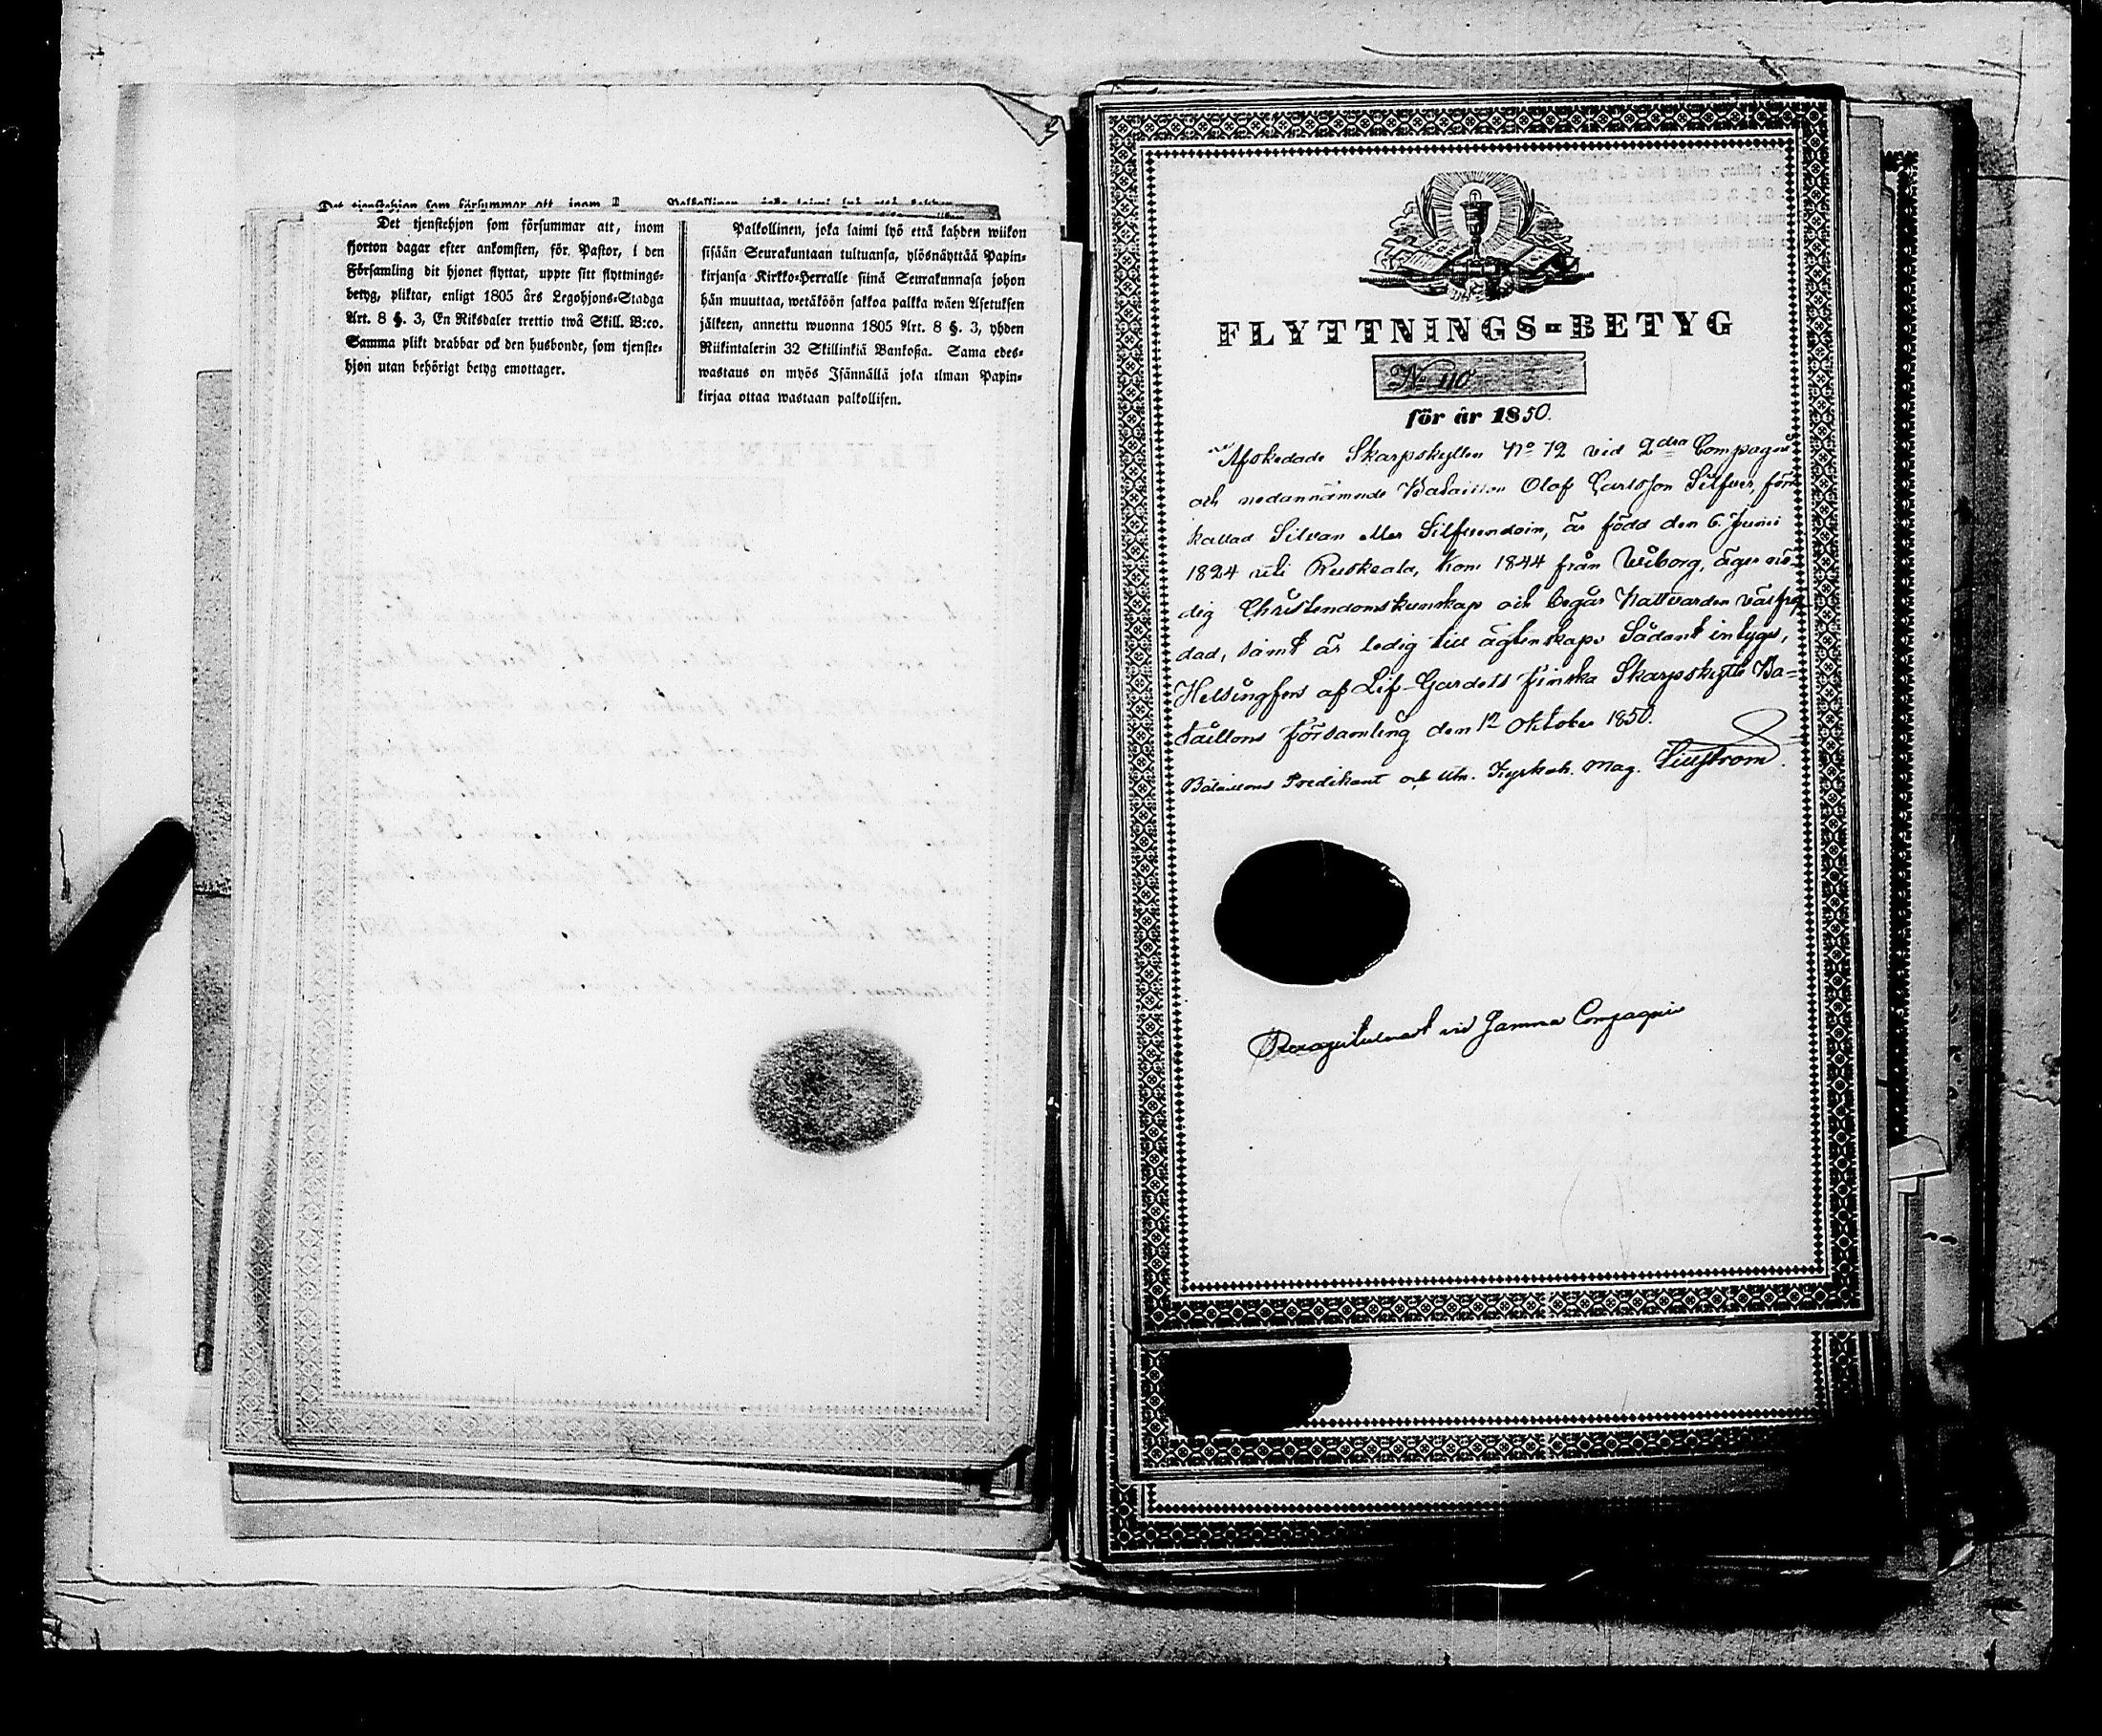 Det tjenstehjon som försummar att, inom
fjorton dagar efter ankomsten, för Pastor, i den
Församling dit hjonet flyttat, uppte sitt flyttnings-
betyg, pliktar, enligt 1805 års Legohjons-Stadga
Art. 8 §. 3, En Riksdaler trettio twå Skill. B:co.
Samma plikt drabbar ock den husbonde, som tjenste-
hjon utan behörigt betyg emottager.
Palkollinen, joka laimi lyö että kahden wiikon
sisään Seurakuntaan tultuansa, ylösnäyttää Papin-
kirjansa Kirkko-Herralle siinä Seurakunnasa johon
hän muuttaa, wetäköön sakkoa palkka wäen Asetuksen
jälkeen, annettu wuonna 1805 Art. 8 §. 3, yhden
Riikintalerin 32 Skillinkiä Bankoßa. Sama edes-
wastaus on myös Isännällä joka ilman Papin-
kirjaa ottaa wastaan palkollisen.
FLYTTNINGS-BETYG
No 110
för år 1850.
Afskedade Skarpskytten No 72 vid 2dra Compagni
och nedannämnde Bataillon Olof Carlsson Silfver, förr
kallad Silvan eller Silfvendoin, är född den 6 Junii
1824 uti Ruskeala, kom 1844 från Wiborg, äger nö-
dig Christendomskunskap och begår Nattvarden värfrej
dad, samt är ledig till ägtenskap. Sådant intygas,
Helsingfors af Lif-Gardets finska Skarpskytte Ba-
taillons församling den 12 Oktober 1850.
Bataillons Predikant och Utn. Kyrkoh. Mag. Liljeström.
vid Samma Compagnie